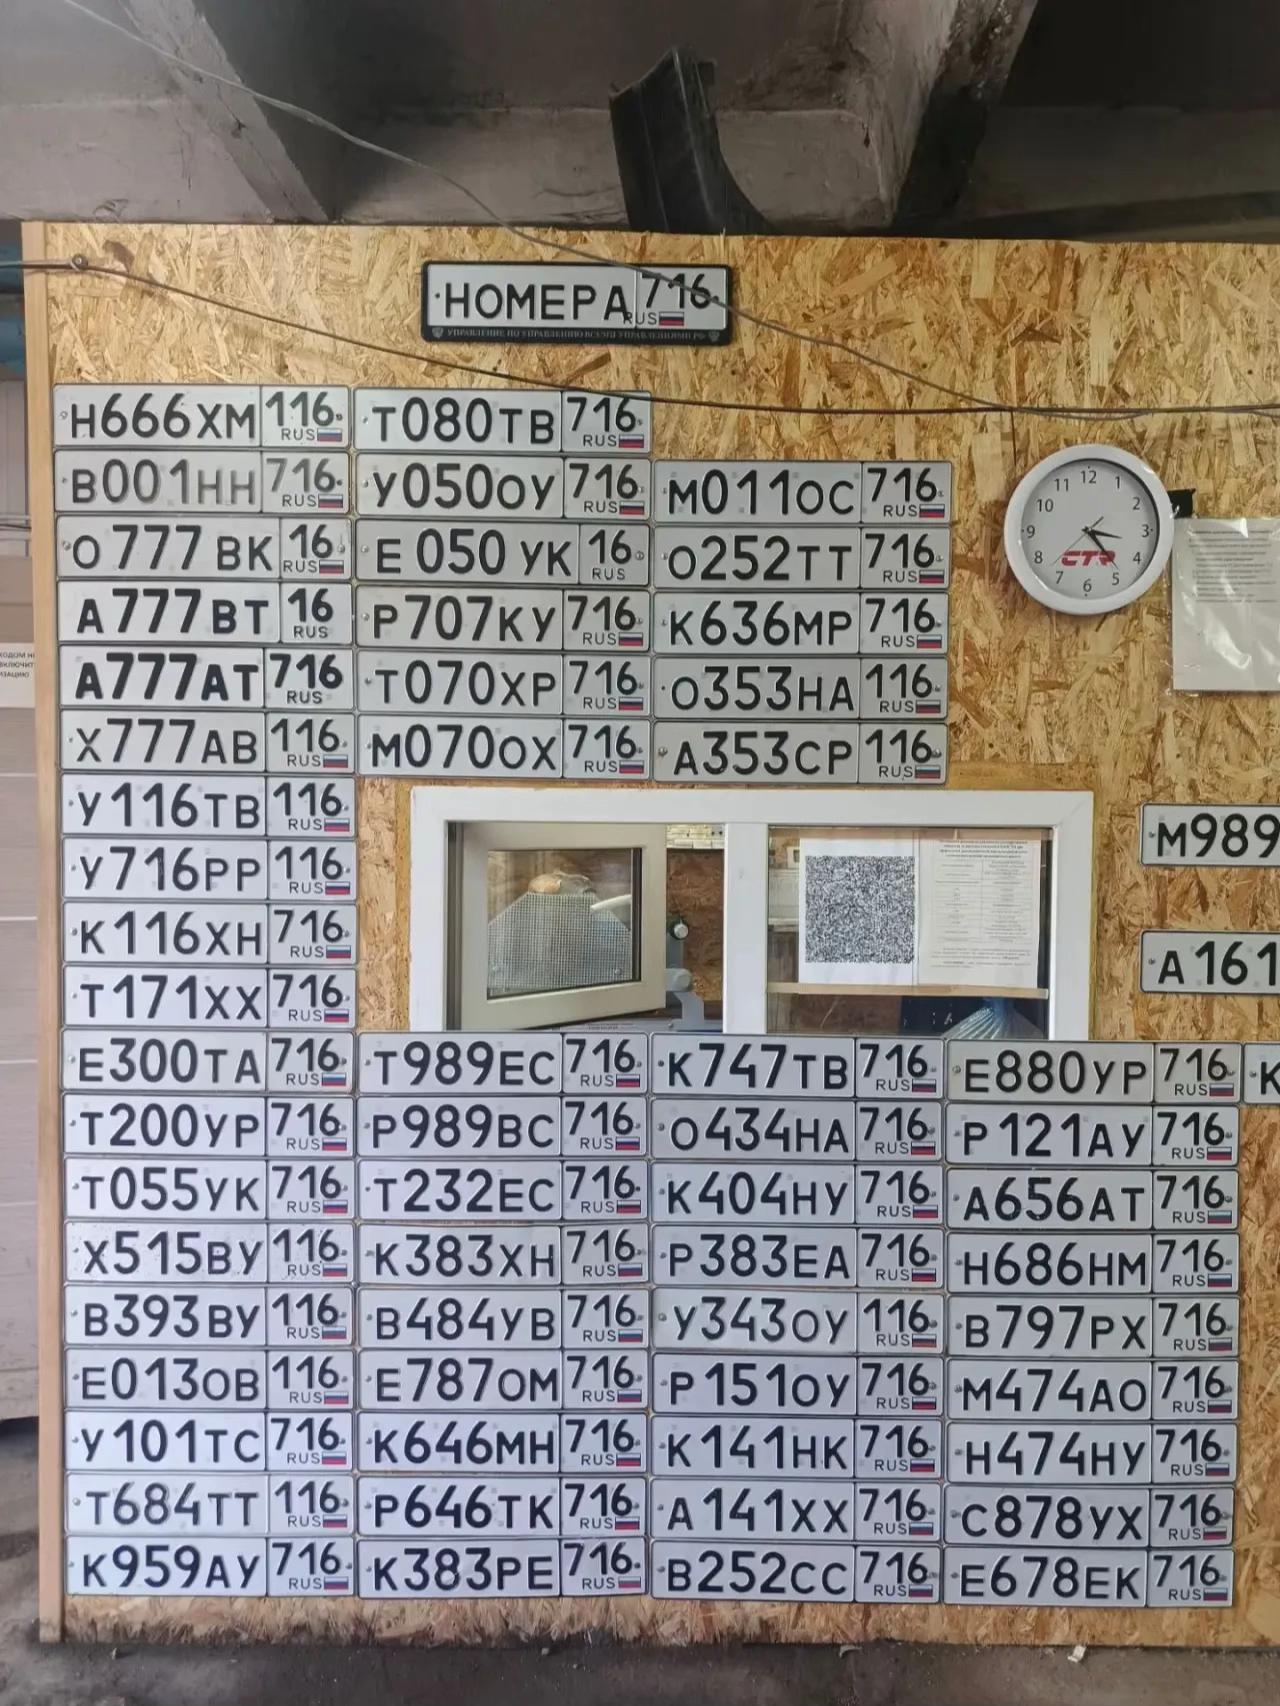 НОМЕРА 716 RUS
УПРАВЛЕНИЕ ПО УПРАВЛЕНИЮ ВСЕМИ УПРАВЛЕНИЯМИ РФ
Н666ХМ 116 RUS
В001НН 716 RUS
О777ВК 16 RUS
А777ВТ 16 RUS
А777АТ 716 RUS
Х777АВ 116 RUS
У116ТВ 116 RUS
У716РР 116 RUS
К116ХН 716 RUS
Т171ХХ 716 RUS
Е300ТА 716 RUS
Т200УР 716 RUS
Т055УК 716 RUS
Х515ВУ 116 RUS
В393ВУ 116 RUS
Е013ОВ 116 RUS
У101ТС 716 RUS
Т684ТТ 116 RUS
К959АУ 716 RUS
Т080ТВ 716 RUS
У050ОУ 716 RUS
Е050УК 16 RUS
Р707КУ 716 RUS
Т070ХР 716 RUS
М070ОХ 716 RUS
М011ОС 716 RUS
О252ТТ 716 RUS
К636МР 716 RUS
О353НА 116 RUS
А353СР 116 RUS
12 1 2 3 4 5 6 7 8 9 10 11
CTR
ХОДОМ Н
ВКЛЮЧИТ
ИЗАЦИЮ
М989
А161
Т989ЕС 716 RUS
Р989ВС 716 RUS
Т232ЕС 716 RUS
К383ХН 716 RUS
В484УВ 716 RUS
Е787ОМ 716 RUS
К646МН 716 RUS
Р646ТК 716 RUS
К383РЕ 716 RUS
К747ТВ 716 RUS
О434НА 716 RUS
К404НУ 716 RUS
Р383ЕА 716 RUS
У343ОУ 116 RUS
Р151ОУ 716 RUS
К141НК 716 RUS
А141ХХ 716 RUS
В252СС 716 RUS
Е880УР 716 RUS
Р121АУ 716 RUS
А656АТ 716 RUS
Н686НМ 716 RUS
В797РХ 716 RUS
М474АО 716 RUS
Н474НУ 716 RUS
С878УХ 716 RUS
Е678ЕК 716 RUS
К